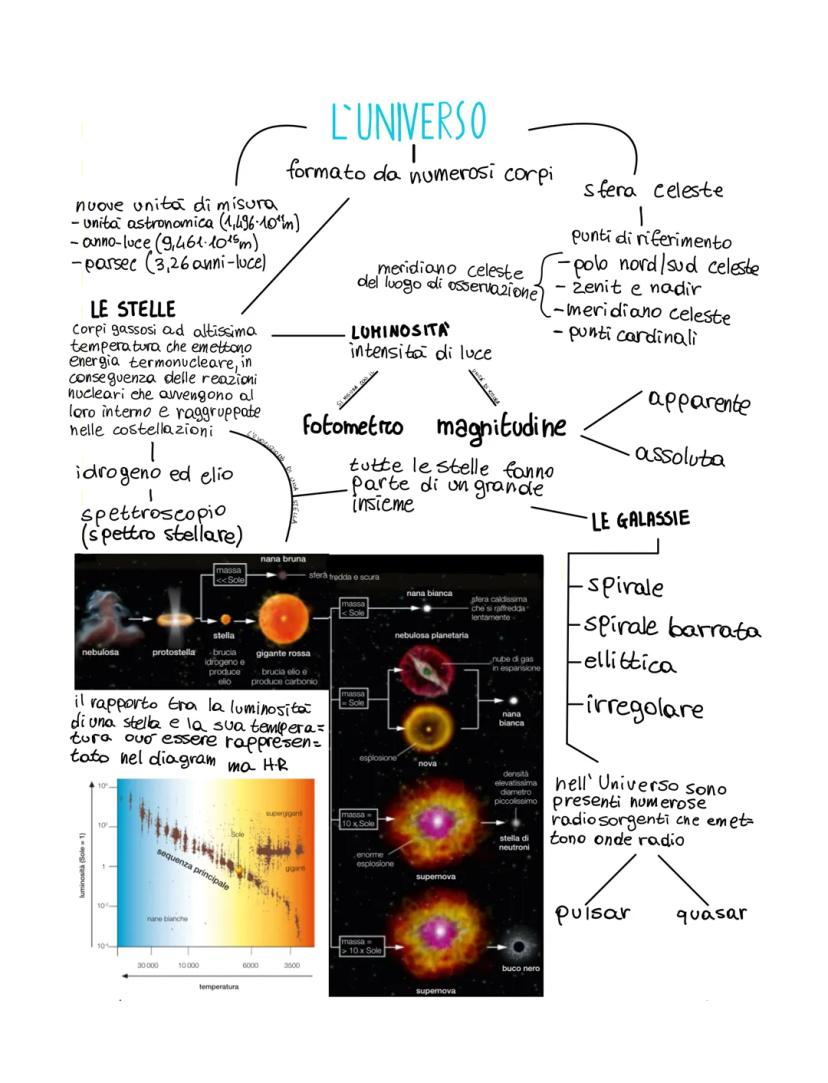 L'UNIVERSO
formato da numerosi corpi
nuove unità di misura
- unità astronomica (1,496·10¹¹m)
- anno-luce (9,461·10¹⁵m)
- parsec (3,26 anni-luce)
sfera celeste
punti di riferimento
- polo nord/sud celeste
- zenit e nadir
- meridiano celeste
- punti cardinali
meridiano celeste
del luogo di osservazione
LE STELLE
corpi gassosi ad altissima
temperatura che emettono
energia termonucleare, in
conseguenza delle reazioni
nucleari che avvengono al
loro interno e raggruppate
nelle costellazioni
idrogeno ed elio
spettroscopio
(spettro stellare)
LUMINOSITA'
intensità di luce
si misura con il
unità di misura
fotometro
magnitudine
apparente
assoluta
L'evoluzione di una stella
tutte le stelle fanno
parte di un grande
insieme
LE GALASSIE
- spirale
- spirale barrata
- ellittica
- irregolare
nell'Universo sono
presenti numerose
radiosorgenti che emet=
tono onde radio
pulsar
quasar
nana bruna
massa
<< Sole
sfera fredda e scura
nebulosa
protostella
stella
brucia
idrogeno e
produce
elio
gigante rossa
brucia elio e
produce carbonio
massa
< Sole
nana bianca
sfera caldissima
che si raffredda
lentamente
nebulosa planetaria
massa
= Sole
nube di gas
in espansione
nana
bianca
esplosione
nova
massa =
10 x Sole
densità
elevatissima
diametro
piccolissimo
stella di
neutroni
enorme
esplosione
supernova
massa =
> 10 x Sole
buco nero
supernova
il rapporto tra la luminosità
di una stella e la sua tempera=
tura può essere rappresen=
tato nel diagram ma H-R
luminosità (Sole = 1)
10²
1
10⁻²
supergiganti
Sole
giganti
sequenza principale
nane bianche
30 000
10 000
6000
3500
temperatura